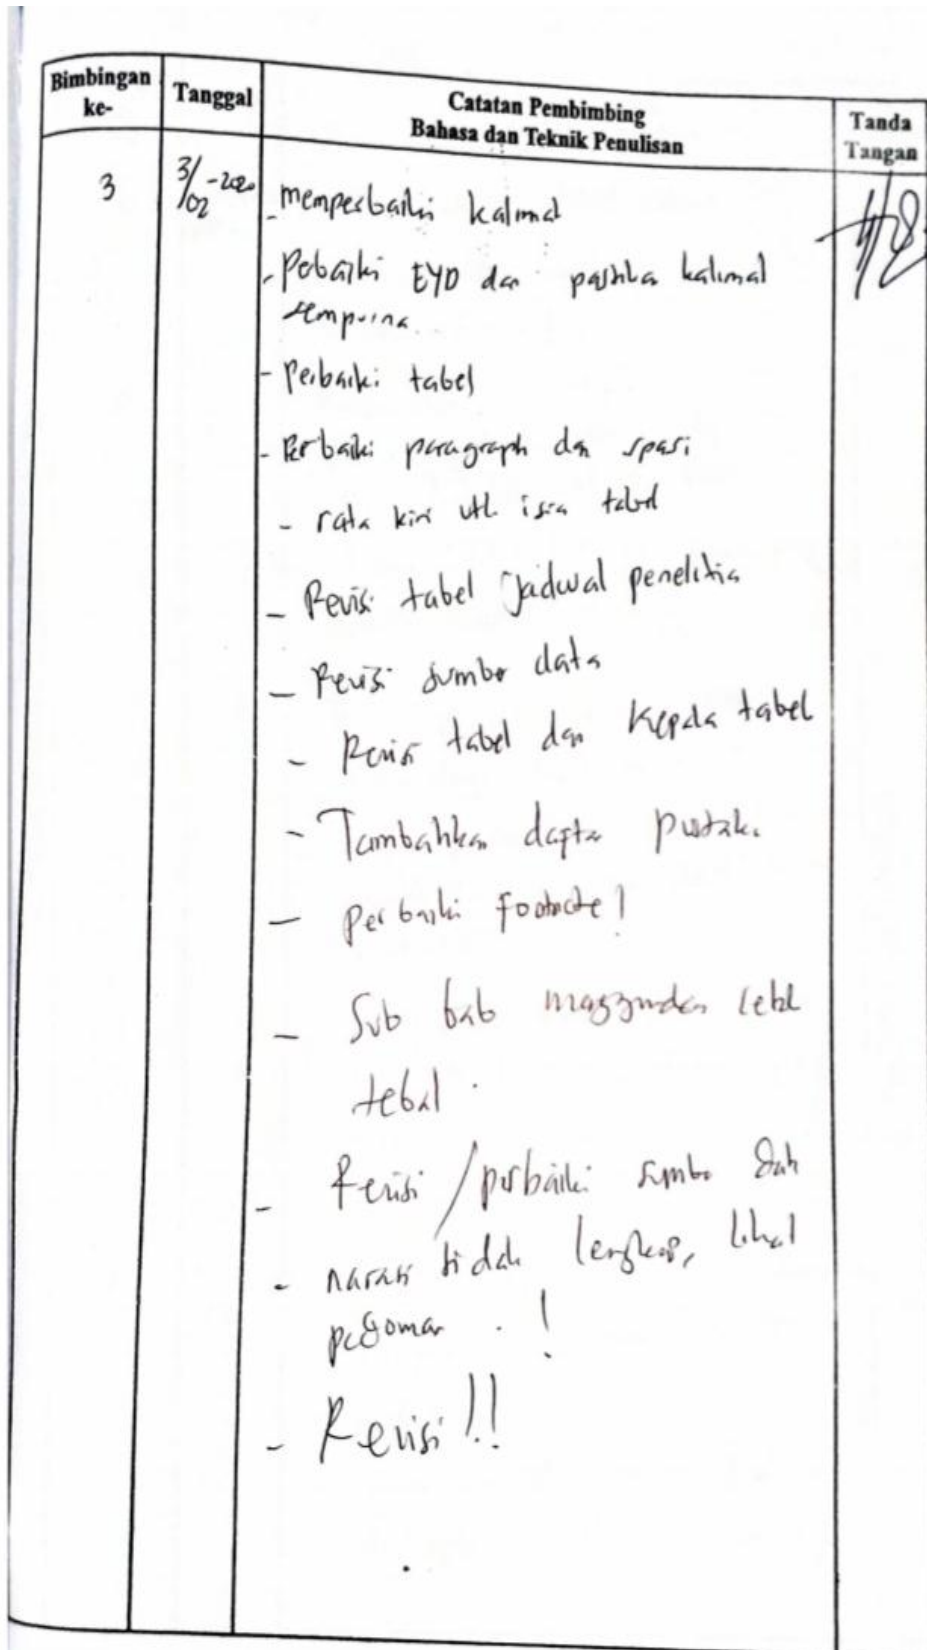 Bimbingan ke-
Tanggal
Catatan Pembimbing
Bahasa dan Teknik Penulisan
Tanda Tangan
3
3/02-2020
- memperbaiki kalimat
- Perbaiki EYD dan kalimat
sempurna
- Perbaiki tabel
- Perbaiki paragraph dan spasi
- rata kiri utk isia tabel
- Revisi tabel jadwal penelitia
- Revisi sumber data
- Revisi tabel dan Kepala tabel
- Tambahkan daftar pustaka
- Perbaiki Footnote!
- Sub bab
tebal.
- Revisi/perbaiki sumber
- narasi tidak lengkap, lihat
pedoman !
- Revisi!!